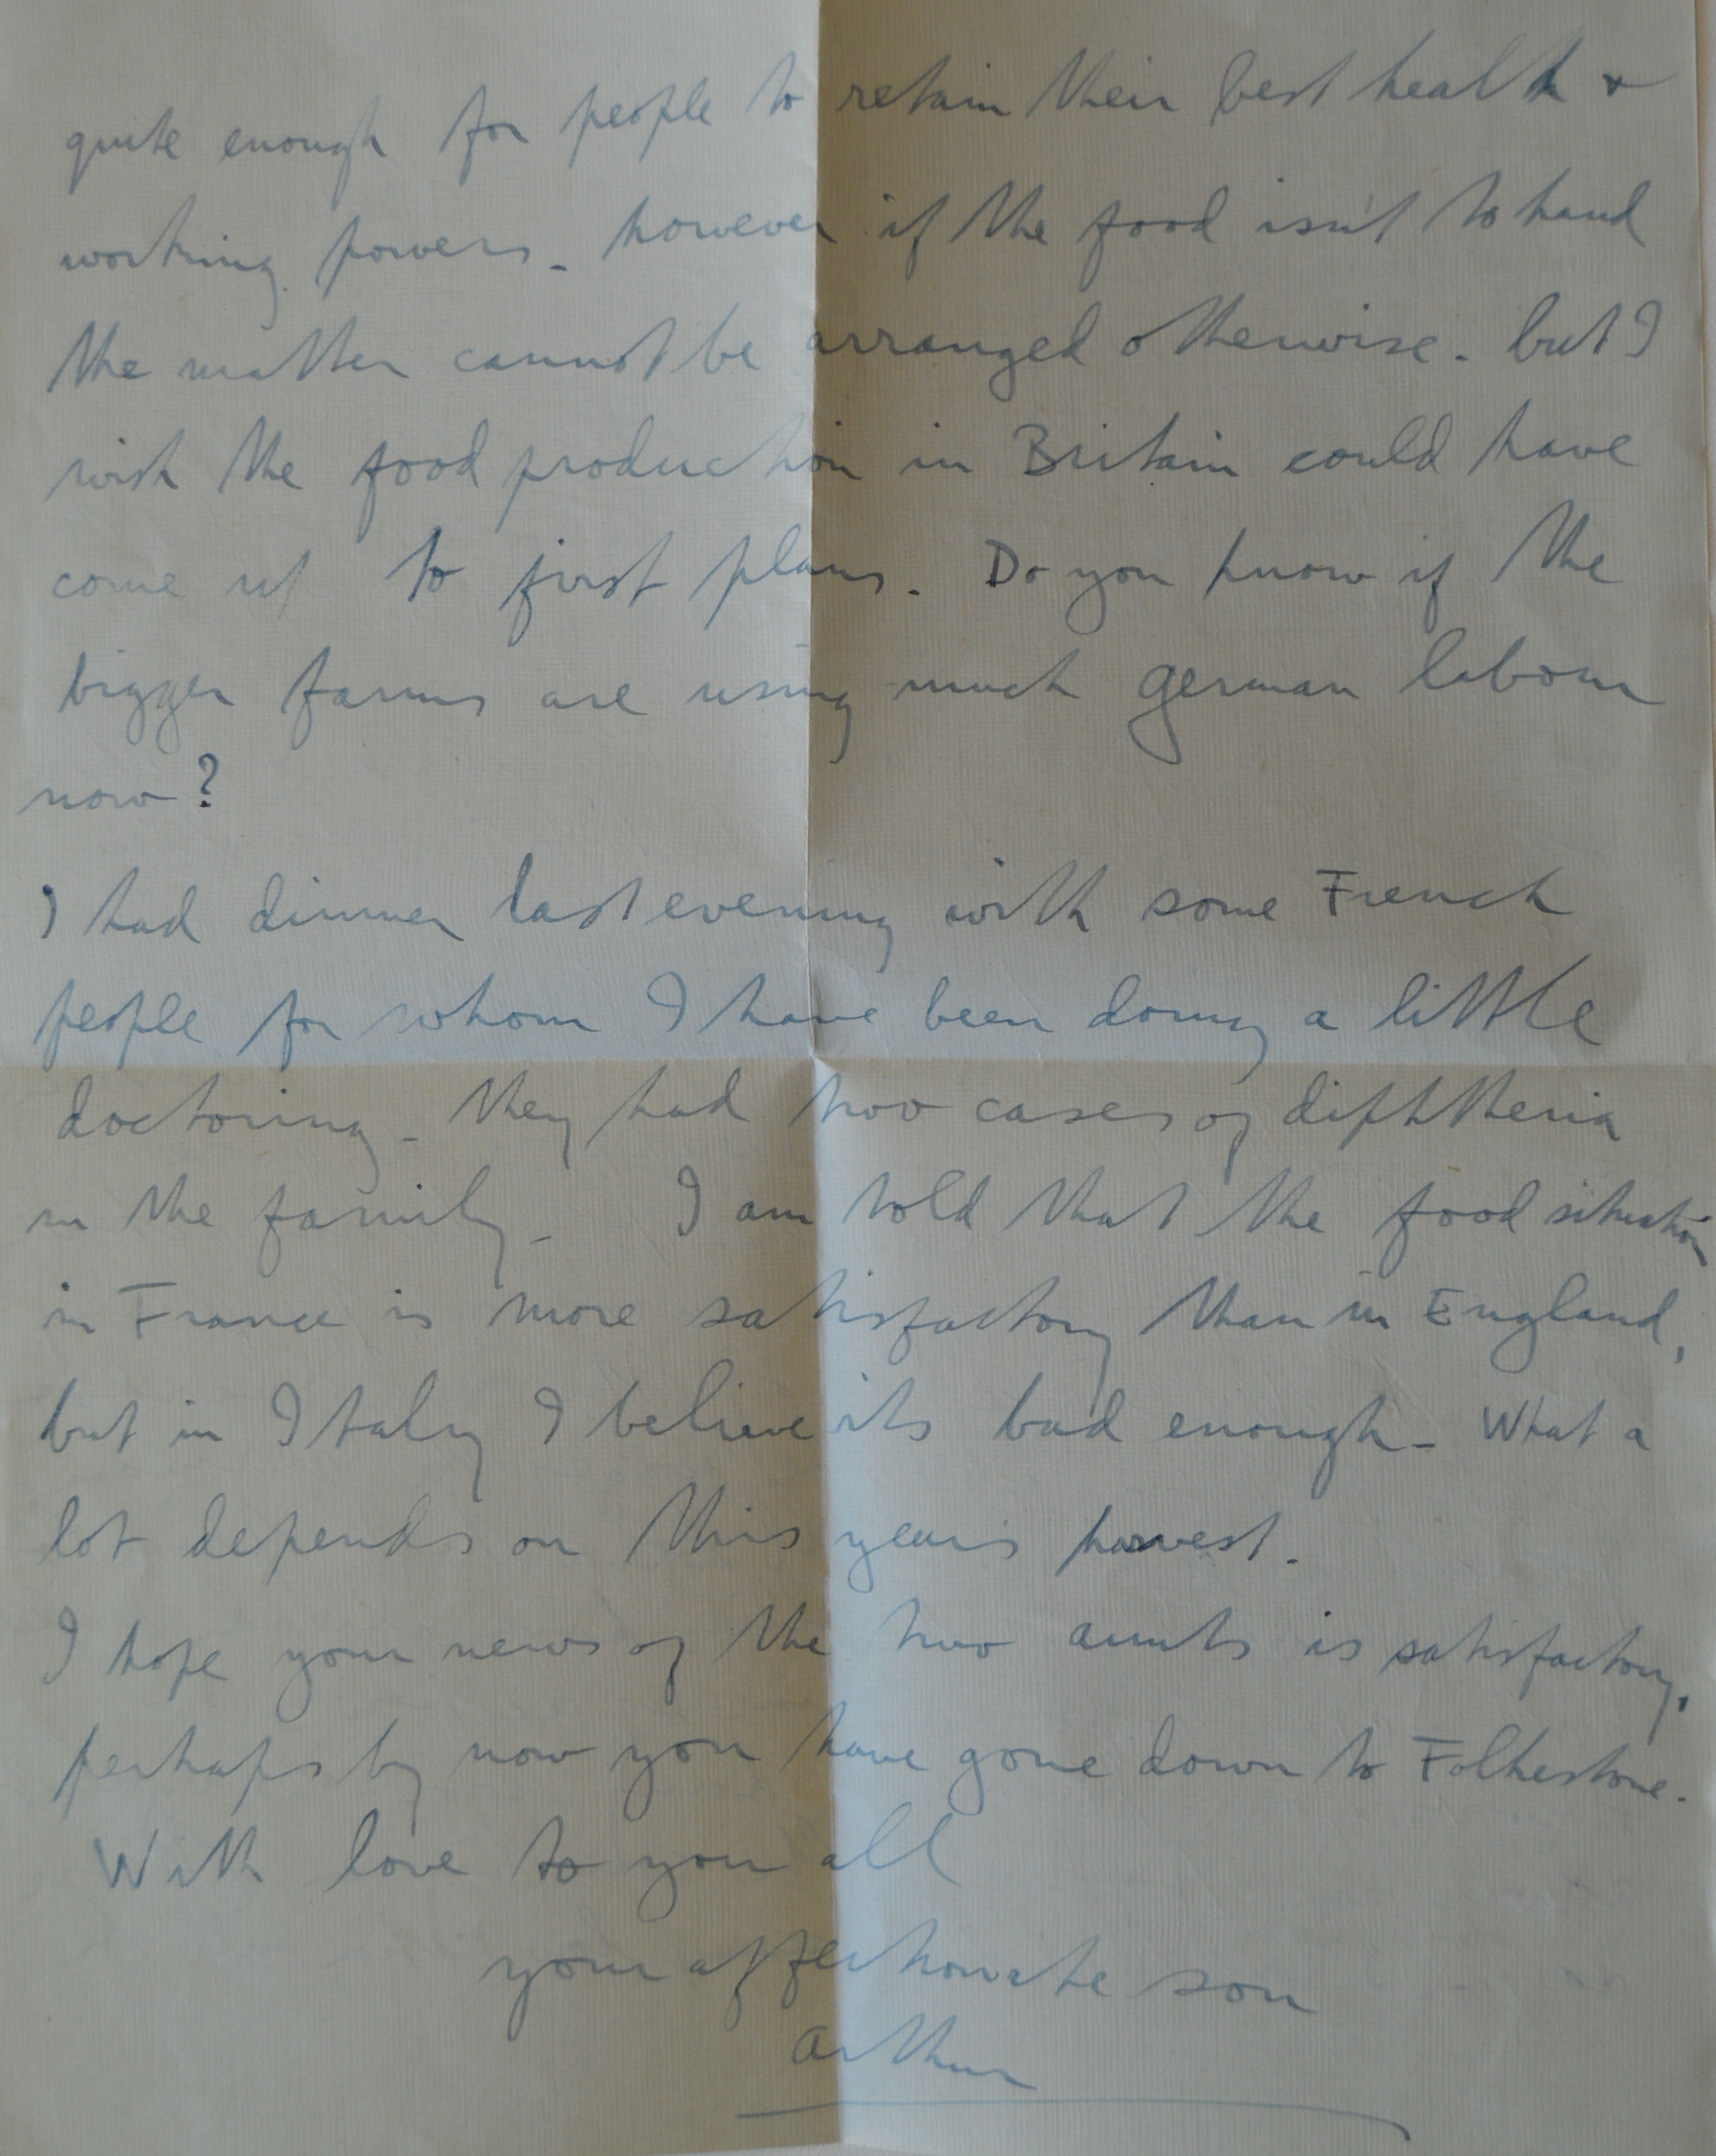 quite enough for people to retain their best health &
working powers - however if the food isn't to hand
the matter cannot be arranged otherwise - but I
wish the food production in Britain could have
come up to first plans. Do you know if the
bigger farms are using much german labour
now?
I had dinner last evening with some French
people for whom I have been doing a little
doctoring - they had two cases of diphtheria
in the family - I am told that the food situation
in France is more satisfactory than in England,
but in Italy I believe its bad enough - What a
lot depends on this years harvest.
I hope your news of the two aunts is satisfactory,
perhaps by now you have gone down to Folkestone.
With love to you all
your affectionate son
Arthur